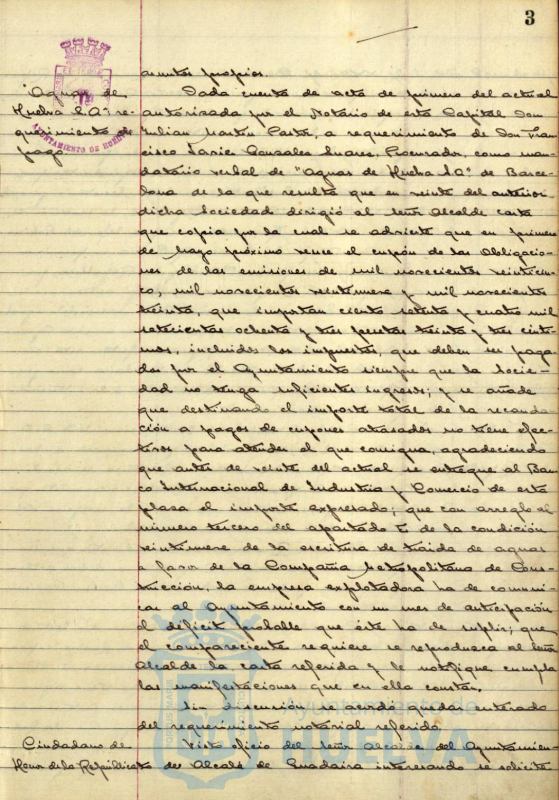 3
asuntos propios.
Aguas de
Huelva S.A. re-
querimiento de
pago
AYUNTAMIENTO DE HUELVA
Dada cuenta de acta de primero del actual
autorizada por el Notario de esta Capital Don
Julian Martin Pastor, a requerimiento de Don Fran-
cisco Javier Gonzalez Suarez, Procurador, como man-
datario verbal de "Aguas de Huelva S.A." de Barce-
lona de la que resulta que en veinte del anterior
dicha Sociedad dirigió al señor Alcalde carta
que copia por la cual se advierte que en primero
de Mayo próximo vence el cupón de las Obligacio-
nes de las emisiones de mil novecientos veinticin-
co, mil novecientos veintinueve y mil novecientos
treinta, que importan ciento setenta y cuatro mil
setecientas ochenta y tres pesetas treinta y tres cénti-
mos, incluidos los impuestos, que deben ser paga-
dos por el Ayuntamiento siempre que la Socie-
dad no tenga suficientes ingresos; y se añade
que destinando el importe total de la recauda-
ción a pagos de cupones atrasados no tiene efec-
tivos para atender el que consigna, agradeciendo
que antes de veinte del actual se entregue al Ban-
co Internacional de Industria y Comercio de esta
plaza el importe expresado; que con arreglo al
número tercero del apartado E de la condición
veintinueve de la escritura de traida de aguas
a favor de la Compañia Metropolitana de Cons-
trucción, la empresa explotadora ha de comuni-
car al Ayuntamiento con un mes de anticipación
el déficit probable que éste ha de suplir; que
el compareciente requiere se reproduzca al señor
Alcalde la carta referida y le notifique cumpla
las manifestaciones que en ella constan.
Sin discusión se acordó quedar enterado
del requerimiento notarial referido.
Ciudadano de
Honor de la República
Visto oficio del señor Alcalde del Ayuntamien-
to de Alcalá de Guadaira interesando se solicite
Ayuntamiento de
HUELVA